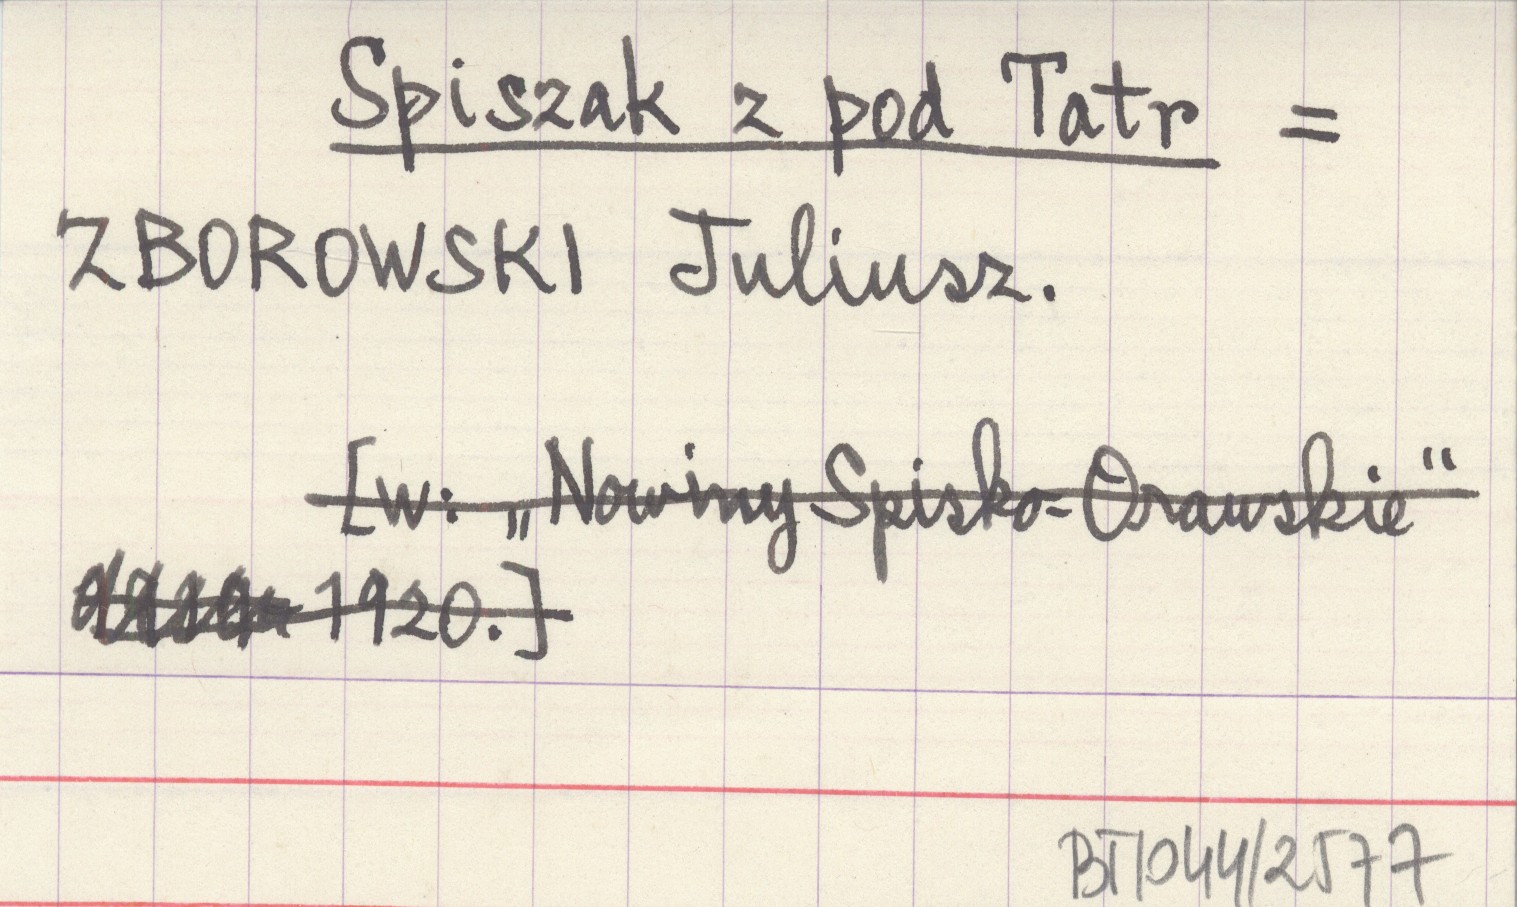 Spiszak z pod Tatr =
ZBOROWSKI Juliusz.
[w: „Nowiny Spisko-Orawskie“
1920.]
BT/044/2577